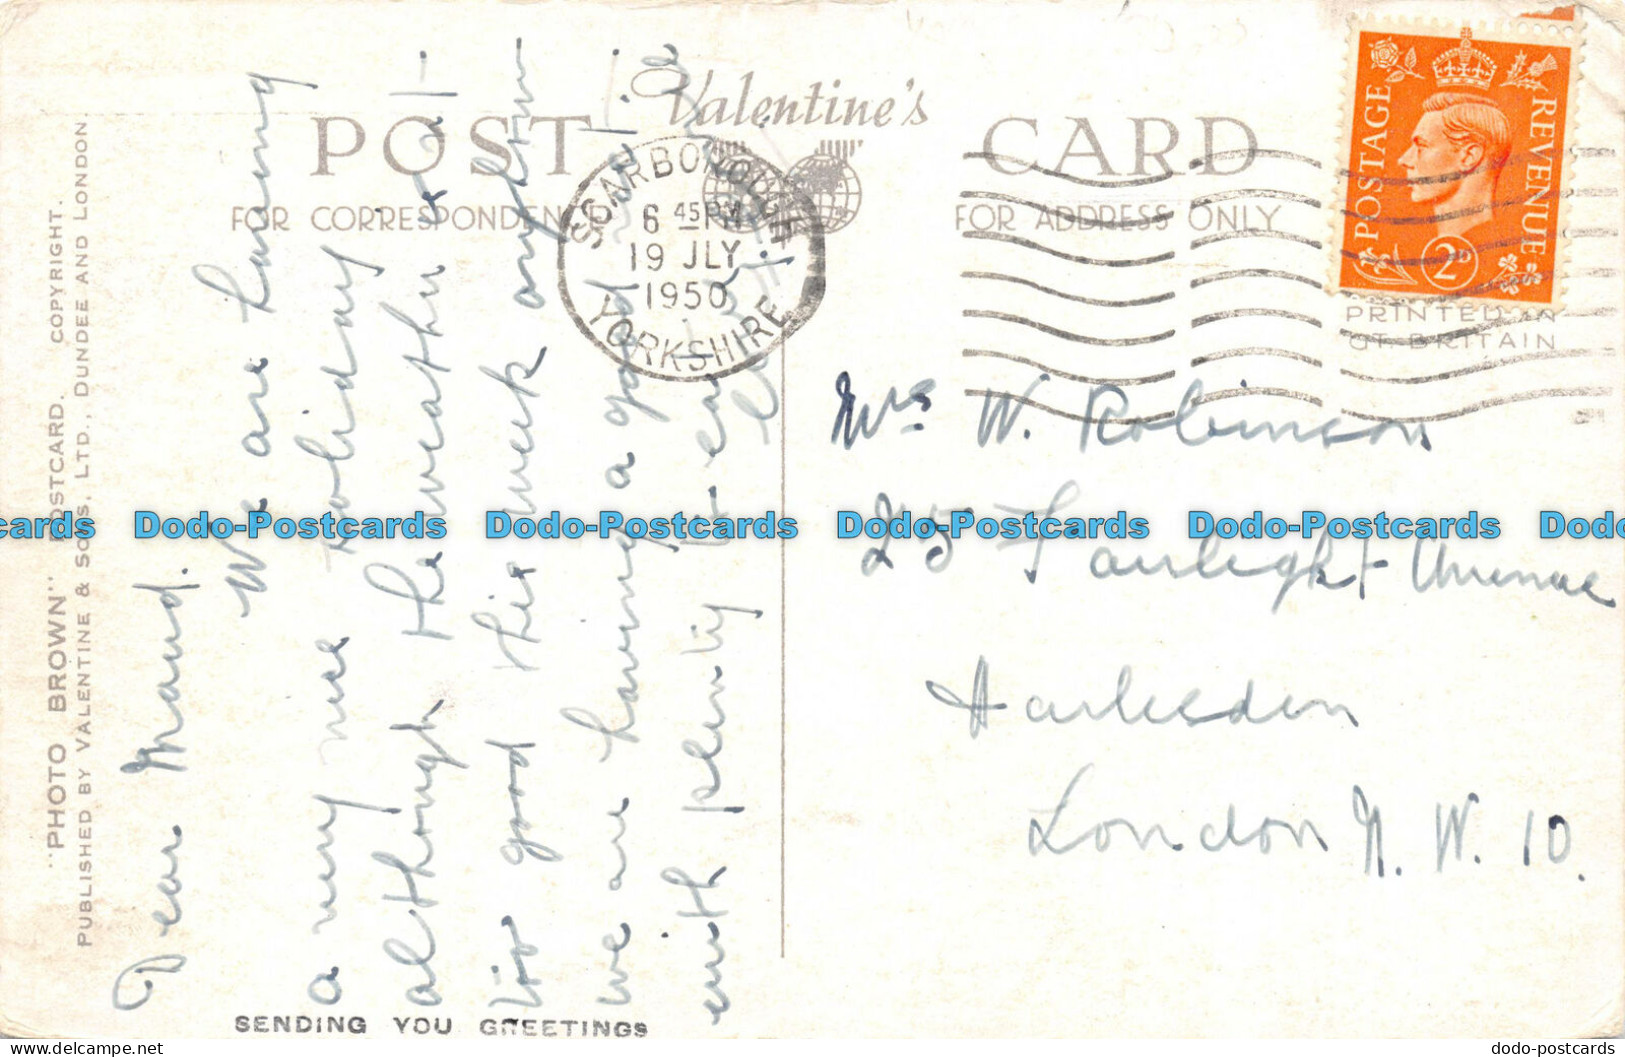 "PHOTO BROWN" POSTCARD. COPYRIGHT.
PUBLISHED BY VALENTINE & SONS, LTD., DUNDEE AND LONDON.
POST CARD
Valentine's
FOR CORRESPONDENCE
FOR ADDRESS ONLY
SCARBOROUGH
6 45 PM
19 JLY
1950
YORKSHIRE
POSTAGE REVENUE
2D
PRINTED IN
GT. BRITAIN
Dear Maud.
We are having
a very nice holiday
although the weather
too good this week
we are having a good
with plenty
Mrs W. Robinson
25 Fairlight Avenue
Harlesden
London N. W. 10.
SENDING YOU GREETINGS
cards Dodo-Postcards Dodo-Postcards Dodo-Postcards Dodo-Postcards Do
delcampe.net
dodo-postcards